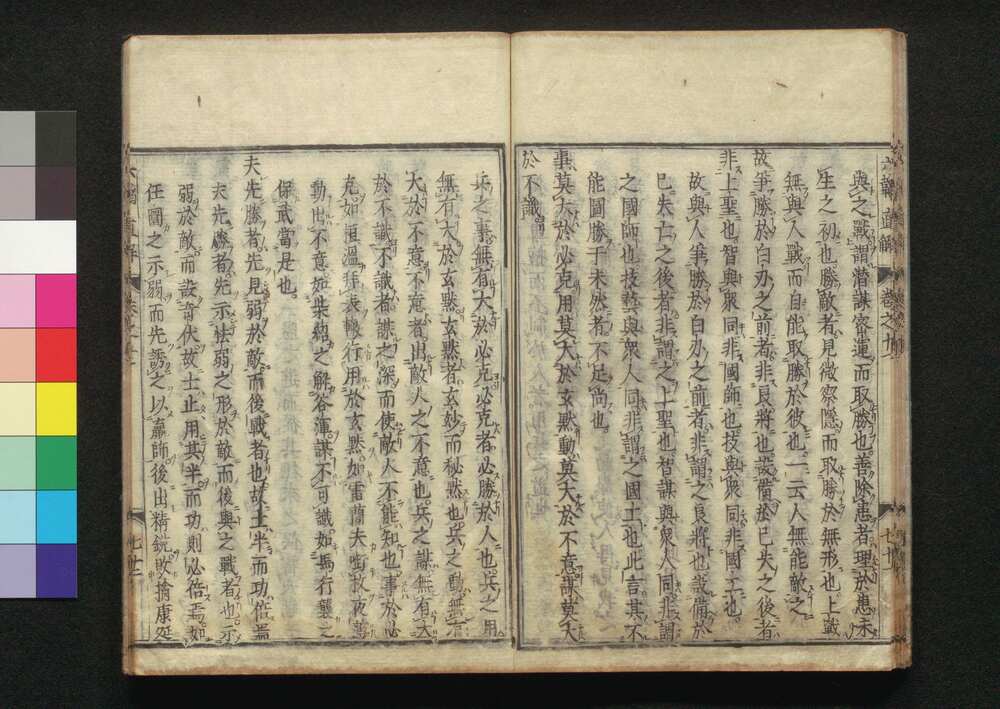 與之戰謂潛謀密運而取勝也善除患者理於患未
生之初也勝敵者見微察隱而取勝於無形也上戰
無與人戰而自能取勝於彼也一云人無能敵之
故爭勝於白刃之前者非良將也設備於已失之後者
非上聖也智與眾同非國師也技與眾同非國工也
故與人爭勝於白刃之前者非謂之良將也設備於
已失亡之後者非謂之上聖也智謀與眾人同非謂
之國師也技藝與眾人同非謂之國工也此言其不
能圖勝于未然者不足尚也
事莫大於必克用莫大於玄默動莫大於不意謀莫大
於不識
兵之事無有大於必克必克者必勝於人也兵之用
無有大於玄默玄默者玄妙而秘默也兵之動無有
大於不意不意者出敵人之不意也兵之謀無有大
於不識不識者謀之深而使敵人不能知也事於必
克如桓溫拜表輒行用於玄默如雷蘭夫
動出不意如柴紹之解谷渾謀不可識如馬行襲之
保武當是也
夫先勝者先見弱於敵而後戰者也故士半而功倍焉
夫先勝者先示怯弱之形於敵而後與之戰者也示
弱於敵而設奇伏故士止用其半而功則必倍焉如
任圜之示弱而先誘之以羸師後出精銳敗擒康延